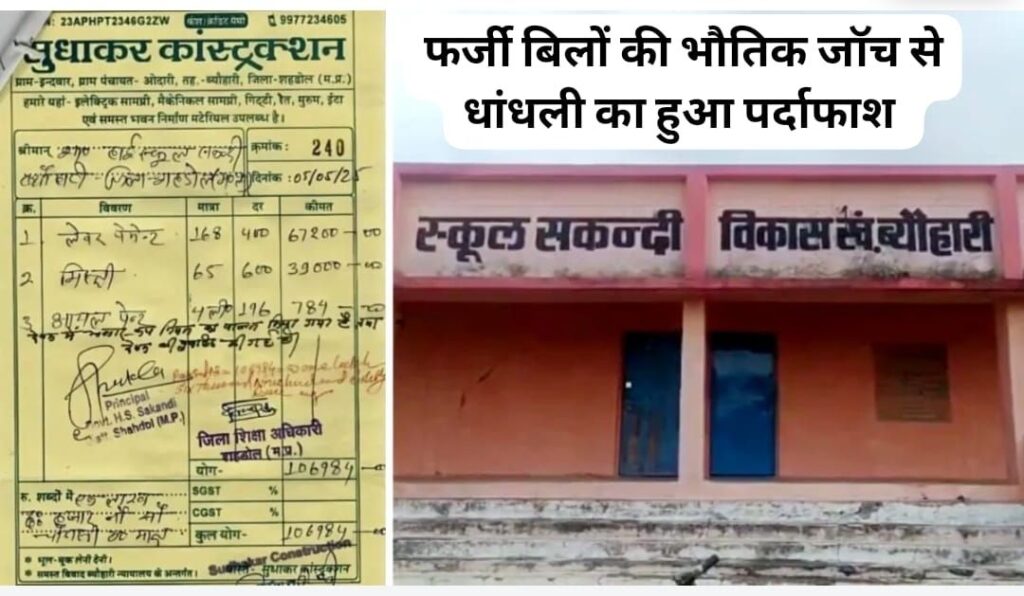 N: 23APHPT2346G2ZW
9977234605
सुधाकर कांस्ट्रक्शन
ग्राम-इन्दवार, ग्राम पंचायत- ओदारी, तह.-ब्यौहारी, जिला-शहडोल (म.प्र.)
हमारे यहां- इलेक्ट्रिक सामग्री, मैकेनिकल सामग्री, गिट्टी, रेत, मुरुम, ईंटा
एवं समस्त भवन निर्माण मटेरियल उपलब्ध है।
श्रीमान् हाई स्कूल क्रमांक: 240
दिनांक: 05/05/25
क्र. विवरण मात्रा दर कीमत
1 लेवर पेमेन्ट 168 400 67200-00
2 मिस्त्री 65 600 39000-00
3 आयल पेन्ट 4 ली० 196 784
Principal
H.S. Sakandi
Shahdol (M.P.)
जिला शिक्षा अधिकारी
शहडोल (म.प्र.)
योग- 106984-00
रु. शब्दों में एक लाख SGST %
छः हजार नौ सौ CGST %
कुल योग- 106984-00
Sudhakar Construction
भूल-चूक लेनी देनी।
समस्त विवाद ब्यौहारी न्यायालय के अन्तर्गत।
वास्ते- सुधाकर कांस्ट्रक्शन
फर्जी बिलों की भौतिक जॉच से
धांधली का हुआ पर्दाफाश
स्कूल सकन्द्री विकास खं.ब्यौहारी